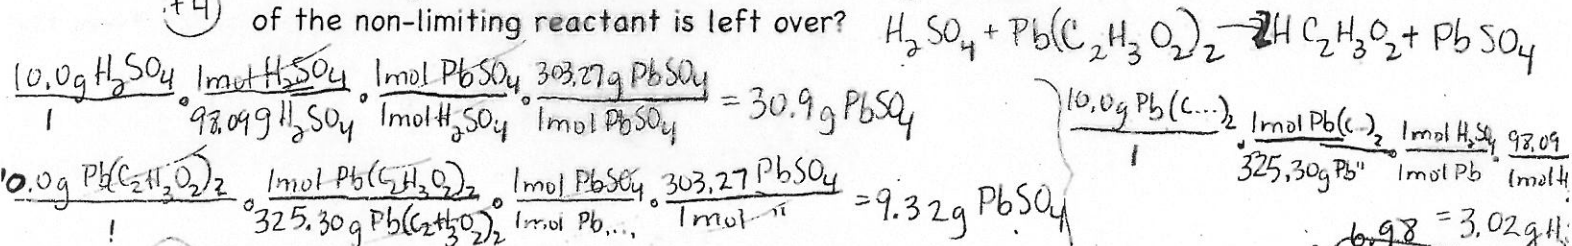 +4 of the non-limiting reactant is left over? H₂SO₄ + Pb(C₂H₃O₂)₂ → 2HC₂H₃O₂ + PbSO₄
10.0g H₂SO₄ / 1 · 1mol H₂SO₄ / 98.09g H₂SO₄ · 1mol PbSO₄ / 1mol H₂SO₄ · 303.27g PbSO₄ / 1mol PbSO₄ = 30.9g PbSO₄
10.0g Pb(C₂H₃O₂)₂ / 1 · 1mol Pb(C₂H₃O₂)₂ / 325.30g Pb(C₂H₃O₂)₂ · 1mol PbSO₄ / 1mol Pb... · 303.27 PbSO₄ / 1mol " = 9.32g PbSO₄
10.0g Pb(C...)₂ / 1 · 1mol Pb(C..)₂ / 325.30g Pb " · 1mol H₂SO₄ / 1mol Pb · 98.09 / 1mol H
6.98 = 3.02g H